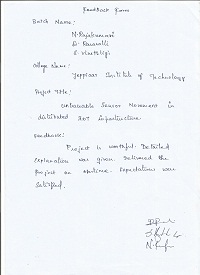 Feedback Form
Batch Name:
N. Rajeswari
D. Revathi
S. Vaitheji
College Name:
Jeppiaar Institute of Technology
Project Title:
Unbeatable Sensor Movement in
distributed IOT Infrastructure.
Feedback:
Project is worthful. Detailed
explanation was given. Delivered the
Project on ontime. Expectations was
Satisfied.